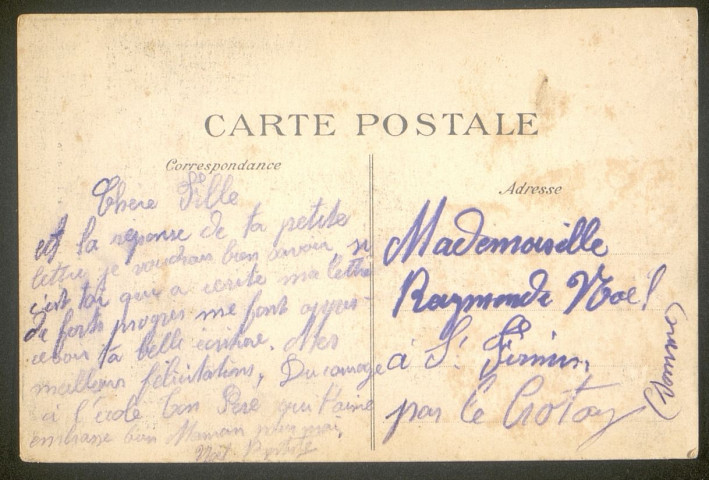 CARTE POSTALE
Correspondance
Chere Fille
est la reponse de ta petite
lettre je voudrais bien savoir si
c'est toi qui a ecrite ma lettre
de forts progres me font appré-
cevoir ta belle ecriture. Mes
meilleurs félicitations, Du courage
a l'école ton Père qui t'aime
embrasse bien Maman pour moi
Noël
Adresse
Mademoiselle
Raymonde Noël
à St Firmin
par le Crotoy
(Somme)